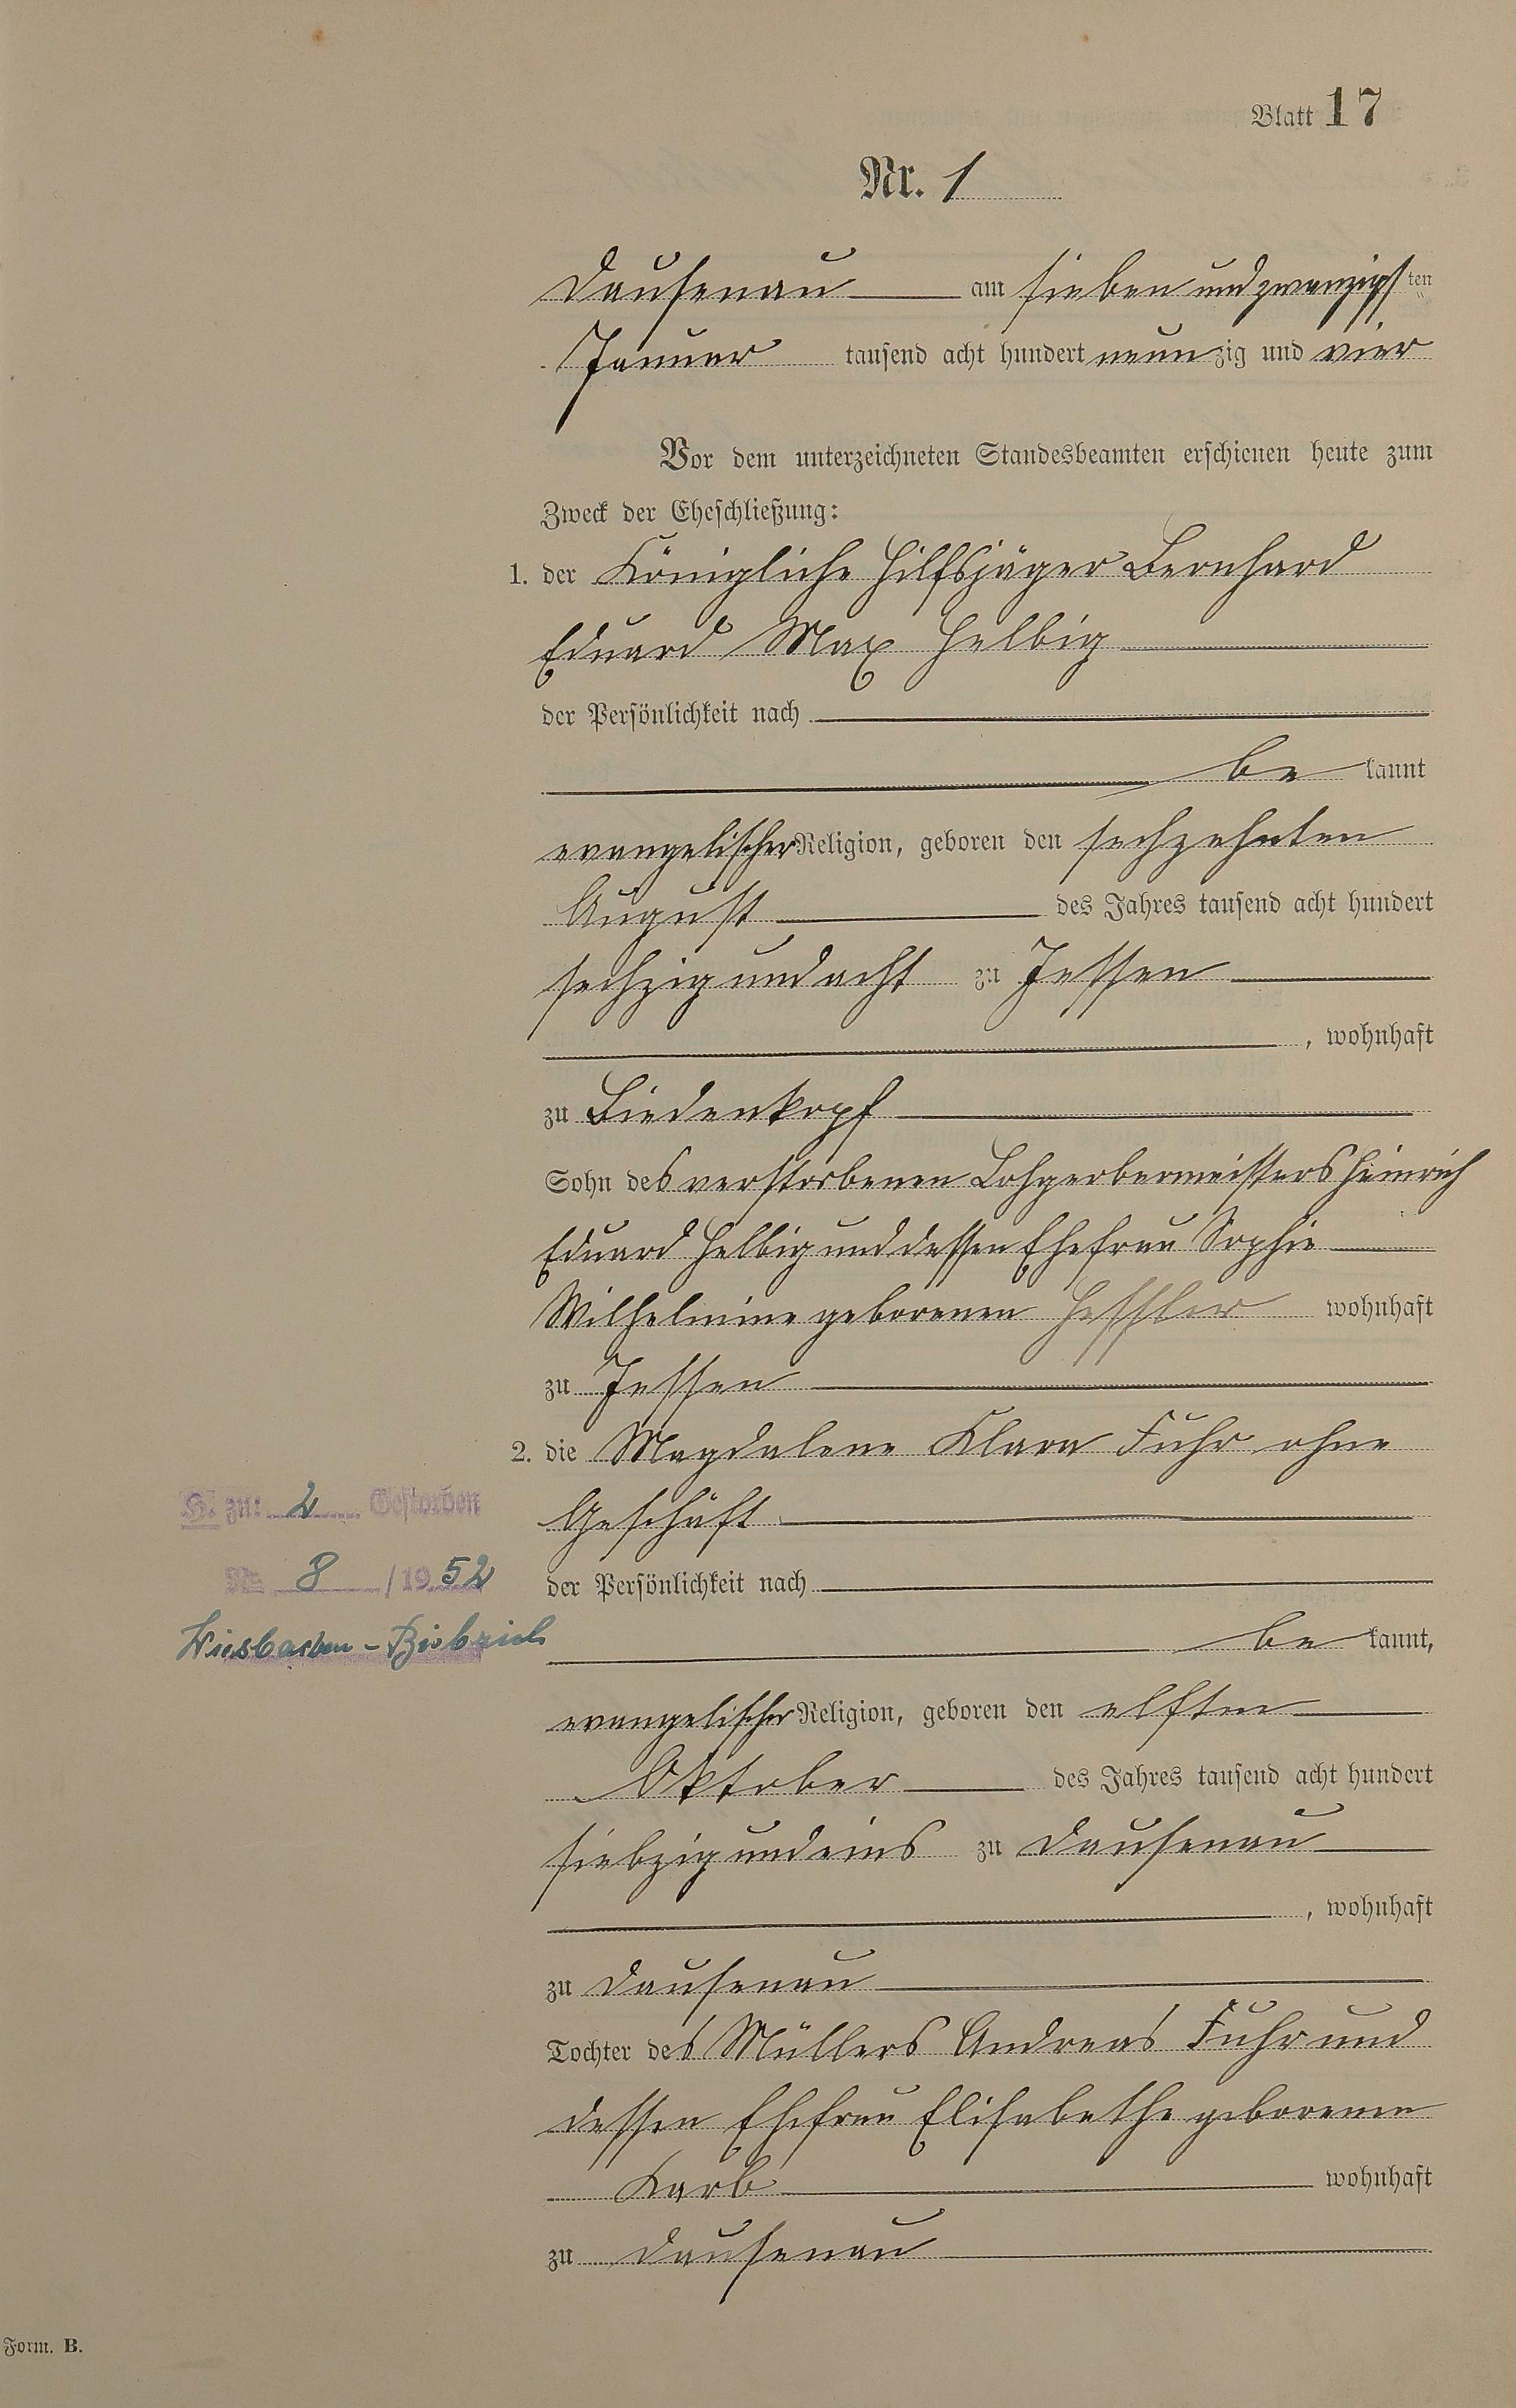 Blatt 17
Nr. 1
Dausenau am sieben und zwanzigsten
Januar tausend acht hundert neunzig und vier
Vor dem unterzeichneten Standesbeamten erschienen heute zum
Zweck der Eheschließung:
1. der Königliche Hilfsjäger Bernhard
Eduard Max Helbig
der Persönlichkeit nach
be kannt
evangelischer Religion, geboren den sechzehnten
August des Jahres tausend acht hundert
sechzig und acht zu Jessen
, wohnhaft
zu Biedenkopf
Sohn des verstorbenen Lohgerbermeisters Heinrich
Eduard Helbig und dessen Ehefrau Sophie
Wilhelmine geborenen Heßler wohnhaft
zu Jessen
2. die Magdalene Klara Fuhr ohne
Geschäft
der Persönlichkeit nach
be kannt,
evangelischer Religion, geboren den elften
Oktober des Jahres tausend acht hundert
siebzig und eins zu Dausenau
, wohnhaft
zu Dausenau
Tochter des Müllers Andreas Fuhr und
dessen Ehefrau Elisabethe geborenen
Karb wohnhaft
zu Dausenau
H. zu: 2 Gestorben
Nr. 8 /1952
Wiesbaden-Biebrich
Form. B.